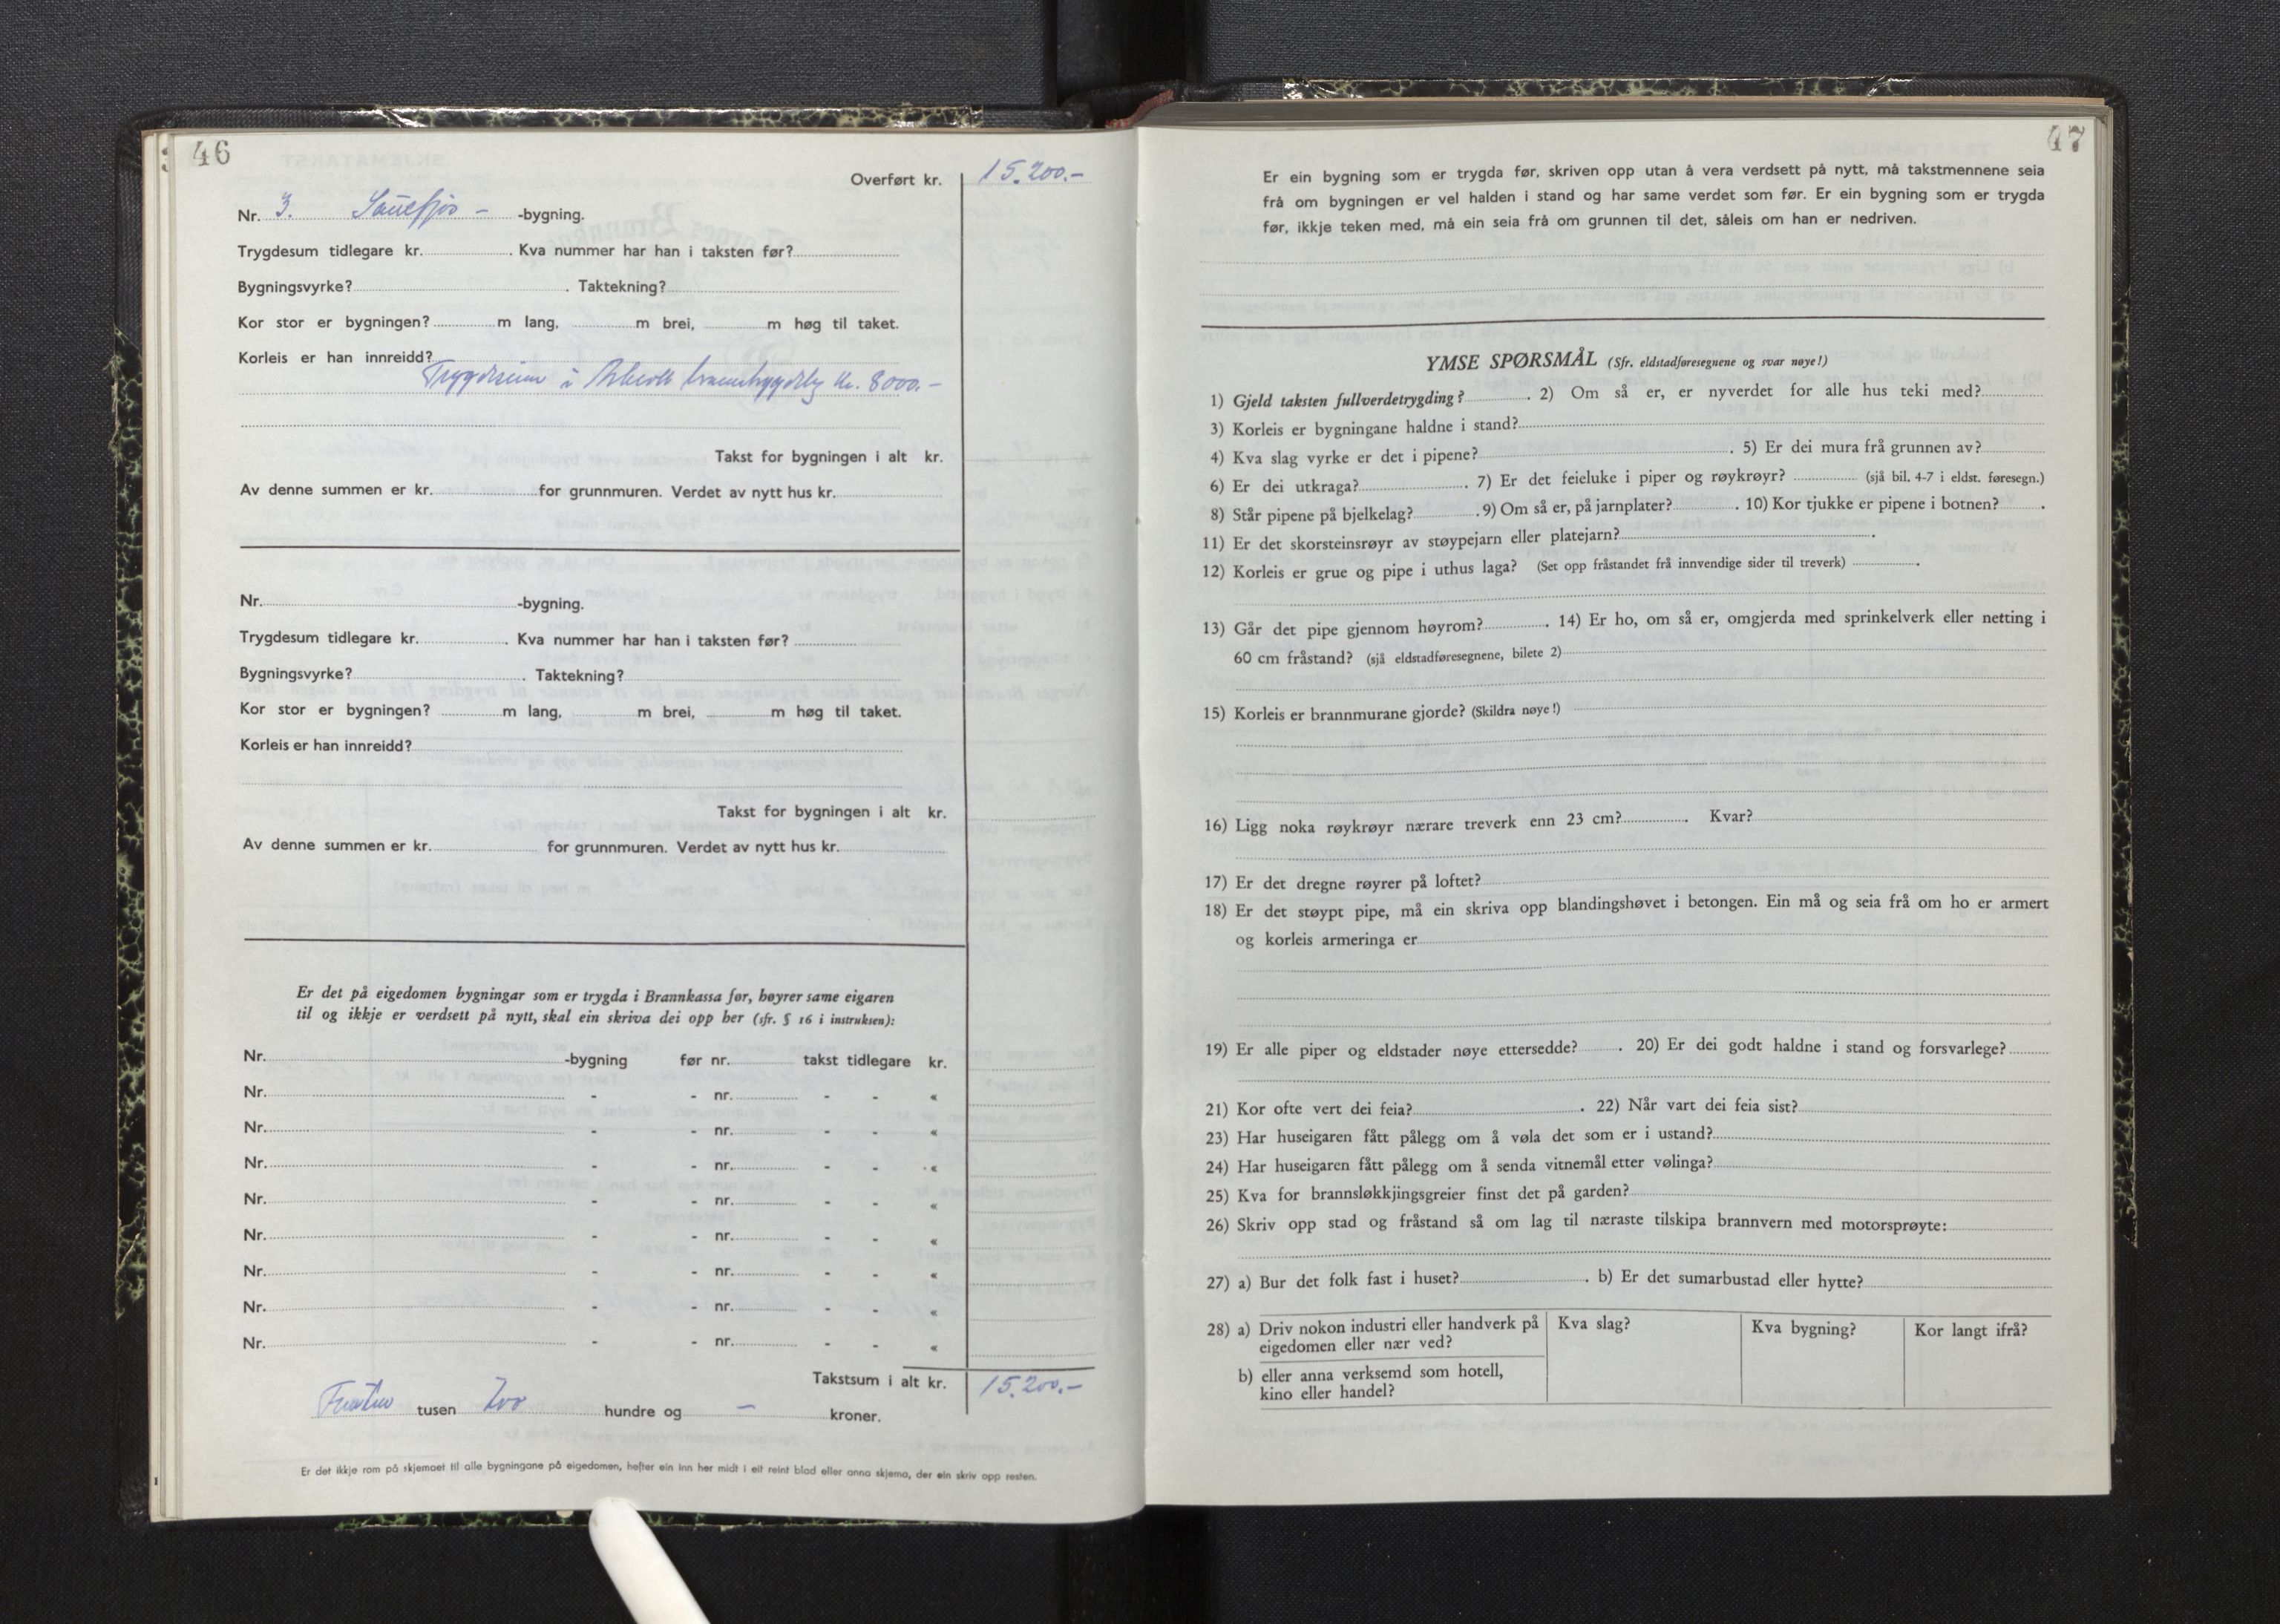 46
Overført kr. 15.200.-
Nr. 3. Sauefjos - -bygning.
Trygdesum tidlegare kr. . Kva nummer har han i taksten før?
Bygningsvyrke? . Taktekning?
Kor stor er bygningen? m lang, m brei, m høg til taket.
Korleis er han innreidd?
Trygdesum i kr. 8000.-
Takst for bygningen i alt kr.
Av denne summen er kr. for grunnmuren. Verdet av nytt hus kr.
Nr. -bygning.
Trygdesum tidlegare kr. . Kva nummer har han i taksten før?
Bygningsvyrke? . Taktekning?
Kor stor er bygningen? m lang, m brei, m høg til taket.
Korleis er han innreidd?
Takst for bygningen i alt kr.
Av denne summen er kr. for grunnmuren. Verdet av nytt hus kr.
Er det på eigedomen bygningar som er trygda i Brannkassa før, høyrer same eigaren
til og ikkje er verdsett på nytt, skal ein skriva dei opp her (sfr. § 16 i instruksen):
Nr. -bygning før nr. takst tidlegare kr.
Nr. - - nr. - - «
Nr. - - nr. - - «
Nr. - - nr. - - «
Nr. - - nr. - - «
Nr. - - nr. - - «
Nr. - - nr. - - «
Nr. - - nr. - - «
Nr. - - nr. - - «
Takstsum i alt kr. 15.200.-
Femten tusen to hundre og - kroner.
Er det ikkje rom på skjemaet til alle bygningane på eigedomen, hefter ein inn her midt i eit reint blad eller anna skjema, der ein skriv opp resten.
47
Er ein bygning som er trygda før, skriven opp utan å vera verdsett på nytt, må takstmennene seia
frå om bygningen er vel halden i stand og har same verdet som før. Er ein bygning som er trygda
før, ikkje teken med, må ein seia frå om grunnen til det, såleis om han er nedriven.
YMSE SPØRSMÅL (Sfr. eldstadføresegnene og svar nøye!)
1) Gjeld taksten fullverdetrygding? . 2) Om så er, er nyverdet for alle hus teki med?
3) Korleis er bygningane haldne i stand?
4) Kva slag vyrke er det i pipene? . 5) Er dei mura frå grunnen av?
6) Er dei utkraga? . 7) Er det feieluke i piper og røykrøyr? (sjå bil. 4-7 i eldst. føresegn.)
8) Står pipene på bjelkelag? . 9) Om så er, på jarnplater? . 10) Kor tjukke er pipene i botnen? .
11) Er det skorsteinsrøyr av støypejarn eller platejarn? .
12) Korleis er grue og pipe i uthus laga? (Set opp fråstandet frå innvendige sider til treverk) .
13) Går det pipe gjennom høyrom? . 14) Er ho, om så er, omgjerda med sprinkelverk eller netting i
60 cm fråstand? (sjå eldstadføresegnene, bilete 2)
15) Korleis er brannmurane gjorde? (Skildra nøye!)
16) Ligg noka røykrøyr nærare treverk enn 23 cm? . Kvar?
17) Er det dregne røyrer på loftet?
18) Er det støypt pipe, må ein skriva opp blandingshøvet i betongen. Ein må og seia frå om ho er armert
og korleis armeringa er
19) Er alle piper og eldstader nøye ettersedde? . 20) Er dei godt haldne i stand og forsvarlege?
21) Kor ofte vert dei feia? . 22) Når vart dei feia sist?
23) Har huseigaren fått pålegg om å vøla det som er i ustand?
24) Har huseigaren fått pålegg om å senda vitnemål etter vølinga?
25) Kva for brannsløkkjingsgreier finst det på garden?
26) Skriv opp stad og fråstand så om lag til næraste tilskipa brannvern med motorsprøyte:
27) a) Bur det folk fast i huset? . b) Er det sumarbustad eller hytte?
28) a) Driv nokon industri eller handverk på Kva slag? Kva bygning? Kor langt ifrå?
eigedomen eller nær ved?
b) eller anna verksemd som hotell,
kino eller handel?